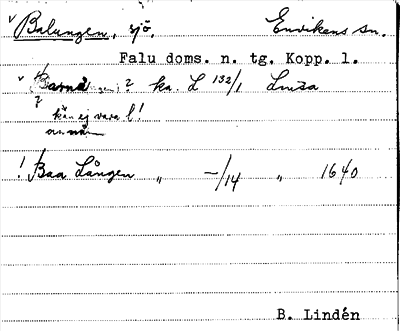 v Balungen, sjö, Envikens sn.
Falu doms. n. tg. Kopp. l.
v ? ka. L 132/1
? kan ej vara l!
! Baa Lången " –/14 " 1640
B. Lindén